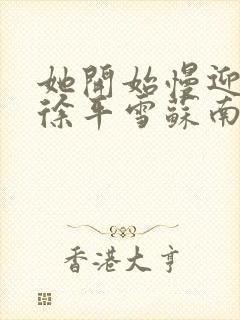 她開始慢迎
徐平雪蘇南
香港大亨